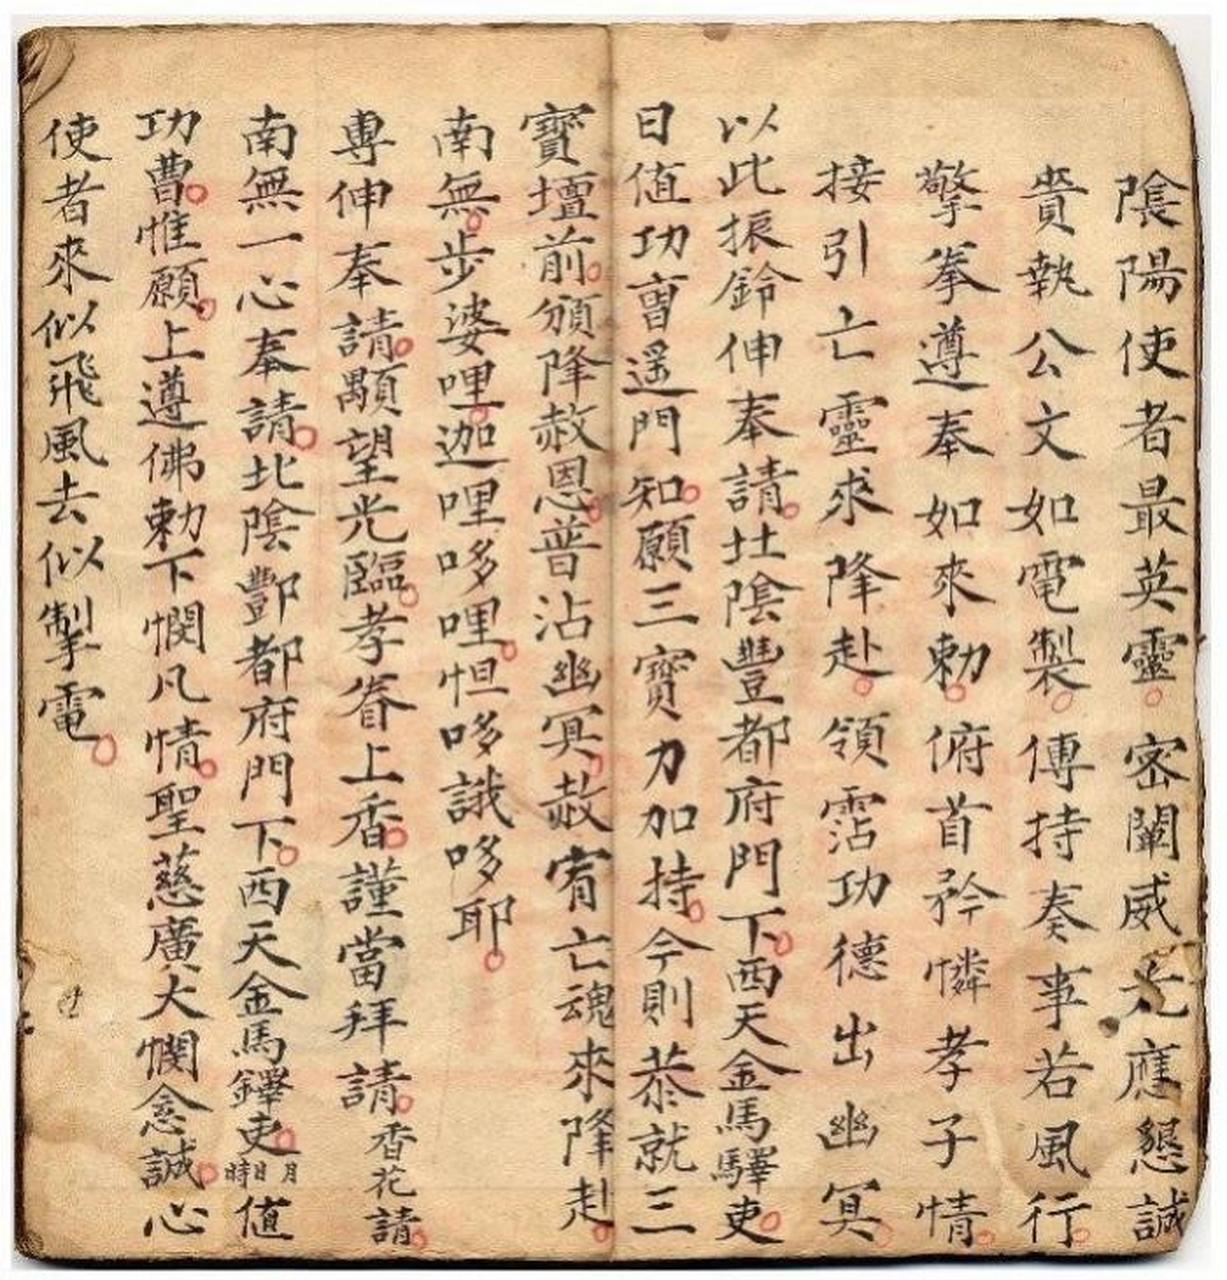 陰陽使者最英靈密闡威光應懇誠
賫執公文如電製傳持奏事若風行
擎拳遵奉如來勅俯首矜憐孝子情
接引亡靈求降赴領霑功德出幽冥
以此振鈴伸奉請北陰豐都府門下西天金馬驛吏
日值功曺遥門知願三寳力加持今則恭就三
寳壇前頒降赦恩普沾幽冥赦宥亡魂來降赴
南無步婆哩迦哩哆哩怛哆誐哆耶
專伸奉請顒望光臨孝眷上香謹當拜請香花請
南無一心奉請北陰酆都府門下西天金馬鐸吏月日時值
功曹惟願上遵佛勅下憫凡情聖慈廣大憫念誠心
使者來似飛風去似掣電